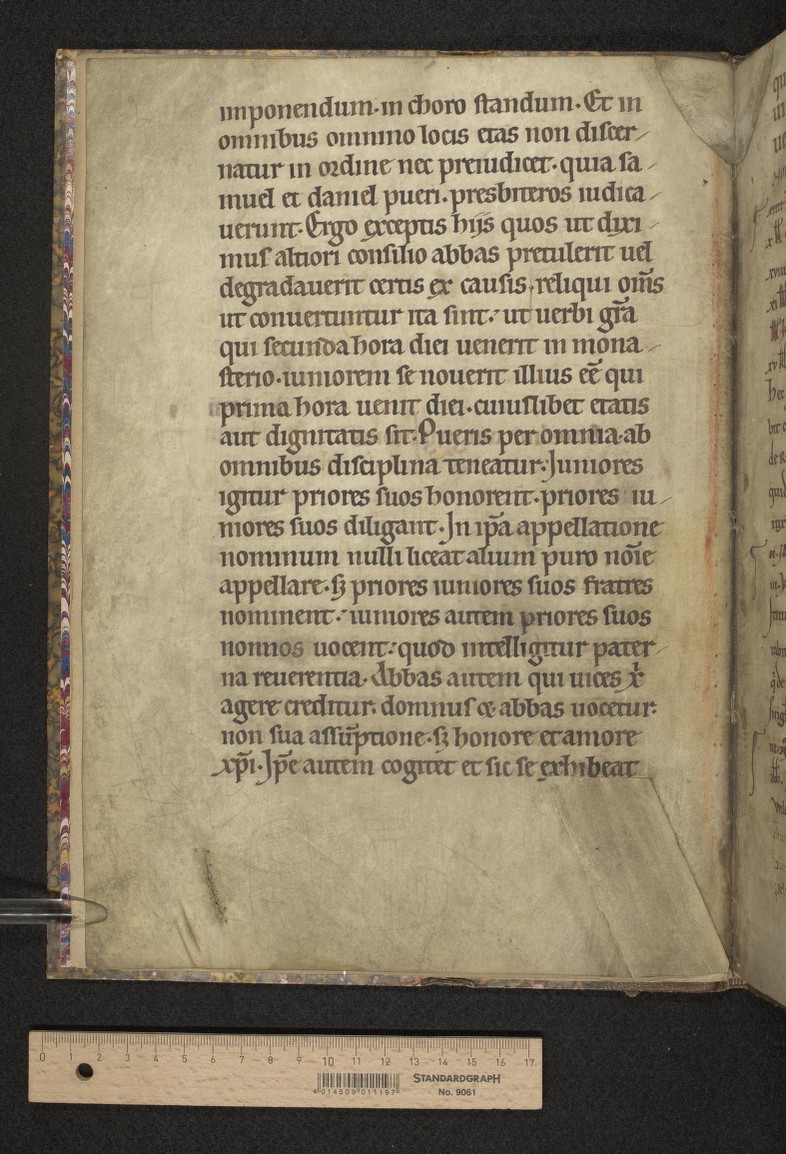 imponendum. in choro standum. Et in
omnibus omnino locis etas non discer
natur in ordine nec preiudicet. quia sa
muel et daniel pueri. presbiteros iudica
uerunt. Ergo exceptis hijs quos ut dixi
mus altiori consilio abbas pretulerit uel
degradauerit certis ex causis, reliqui om̅s
ut conuertuntur ita sint: ut uerbi gr̅a
qui secunda hora diei uenerit in mona
sterio. iuniorem se nouerit illius ee̅ qui
prima hora uenit diei. cuiuslibet etatis
aut dignitatis sit. Pueris per omnia ab
omnibus disciplina teneatur. Juniores
igitur priores suos honorent. priores iu
niores suos diligant. Jn ip̅a appellatione
nominum nulli liceat alium puro no̅ie
appellare. sꝫ priores iuniores suos fratres
nominent: iuniores autem priores suos
nonnos uocent: quod intelligitur pater
na reuerentia. Abbas autem qui uices xp̅i
agere creditur. domnus et abbas uocetur.
non sua assu̅ptione. sꝫ honore et amore
xp̅i. Jp̅e autem cogitet et sic se exhibeat
0 1 2 3 4 5 6 7 8 9 10 11 12 13 14 15 16 17
STANDARDGRAPH
No. 9061
4 014509 011197